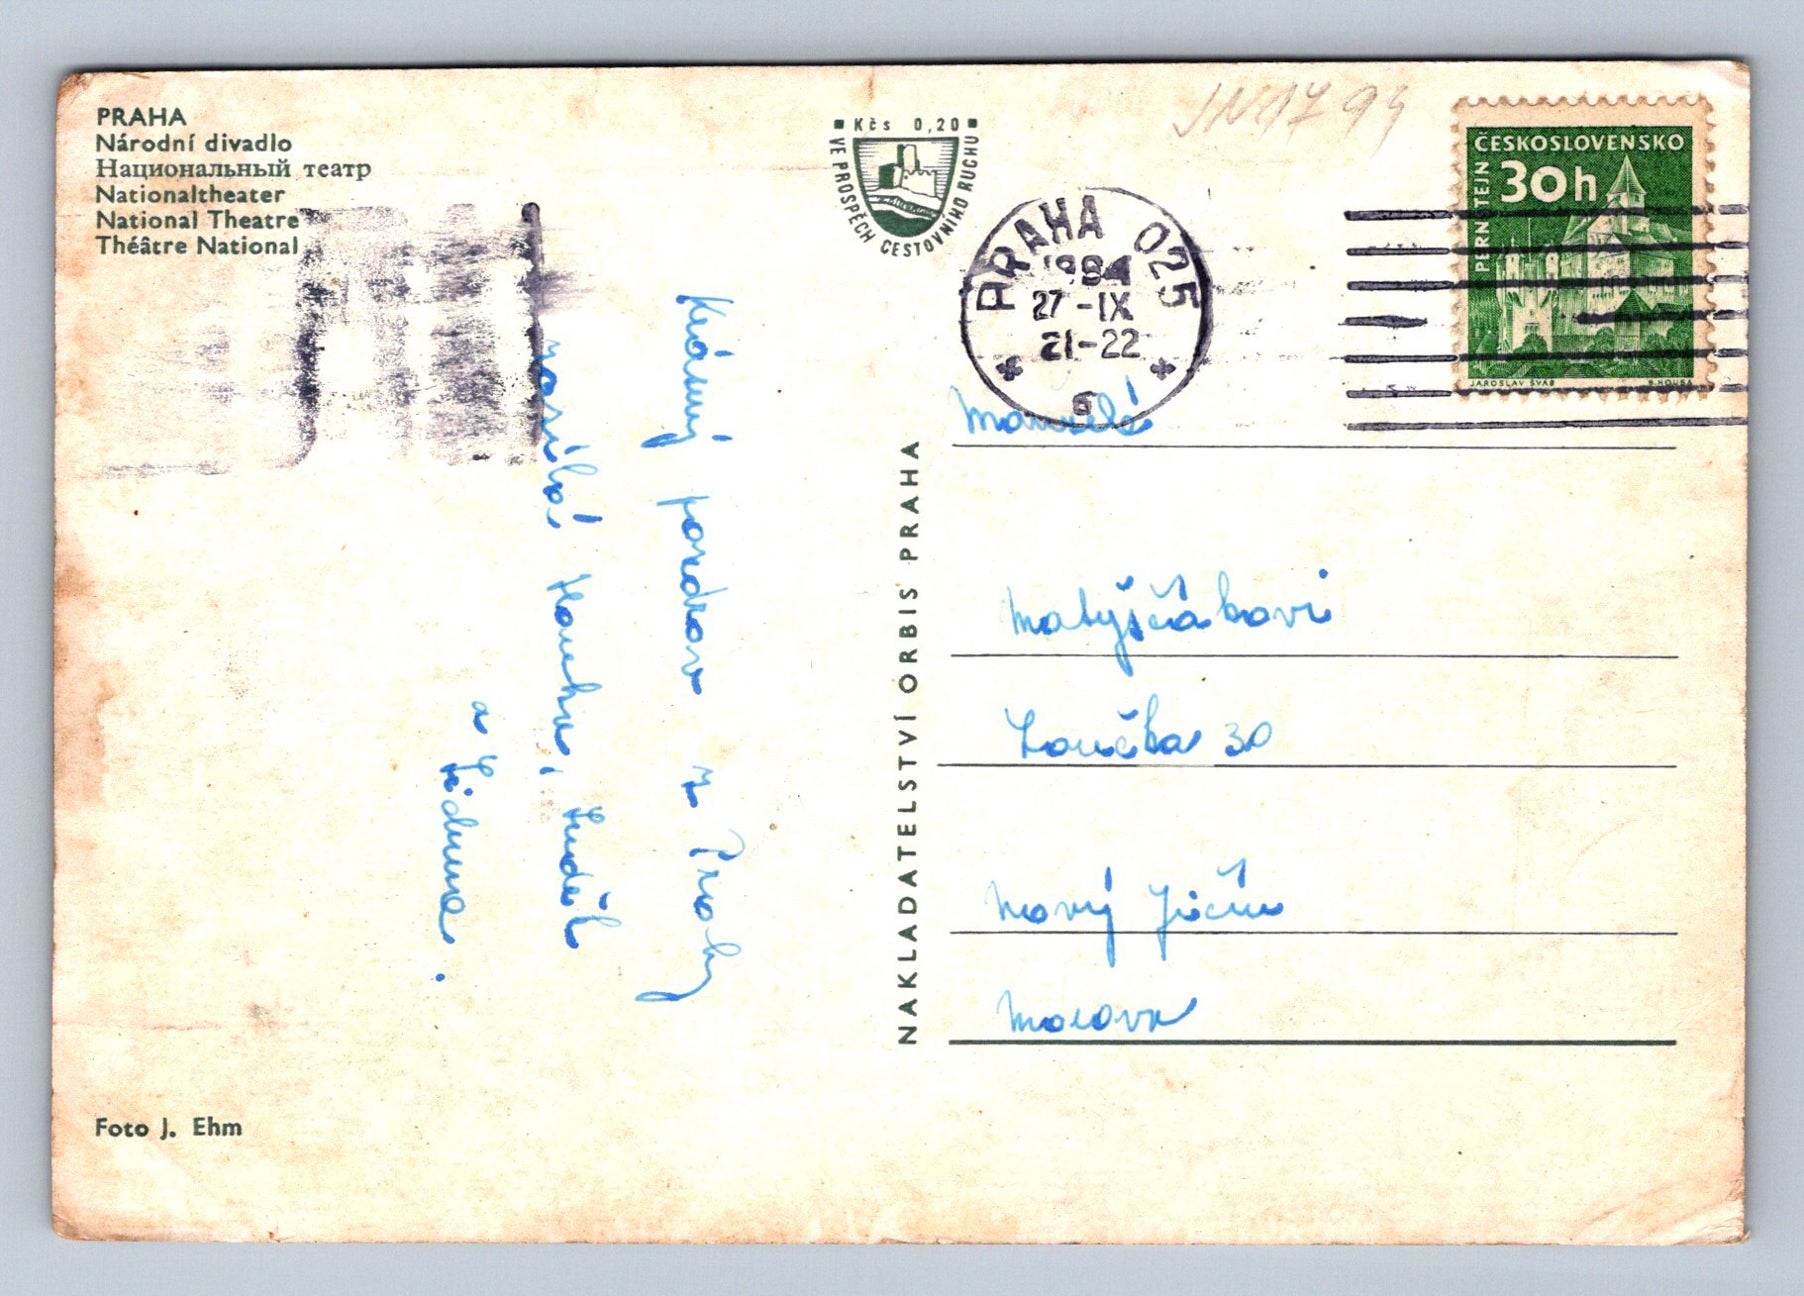 PRAHA
Národní divadlo
Национальный театр
Nationaltheater
National Theatre
Théâtre National
Kčs 0,20
VE PROSPĚCH CESTOVNÍHO RUCHU
PRAHA 025
27-IX
21-22
6
ČESKOSLOVENSKO
30h
PERNŠTEJN
JAROSLAV ŠVÁB
Krásný pozdrav z Prahy
zasílá Hanka, Luděk
a Liduna.
NAKLADATELSTVÍ ORBIS PRAHA
Manželé
Matýščákovi
Loučka 30
Nový Jičín
Morava
Foto J. Ehm